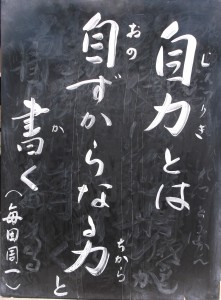 自力とは
じりき
自ずからなる力と
おの
ちから
書く
か
(毎田周一)